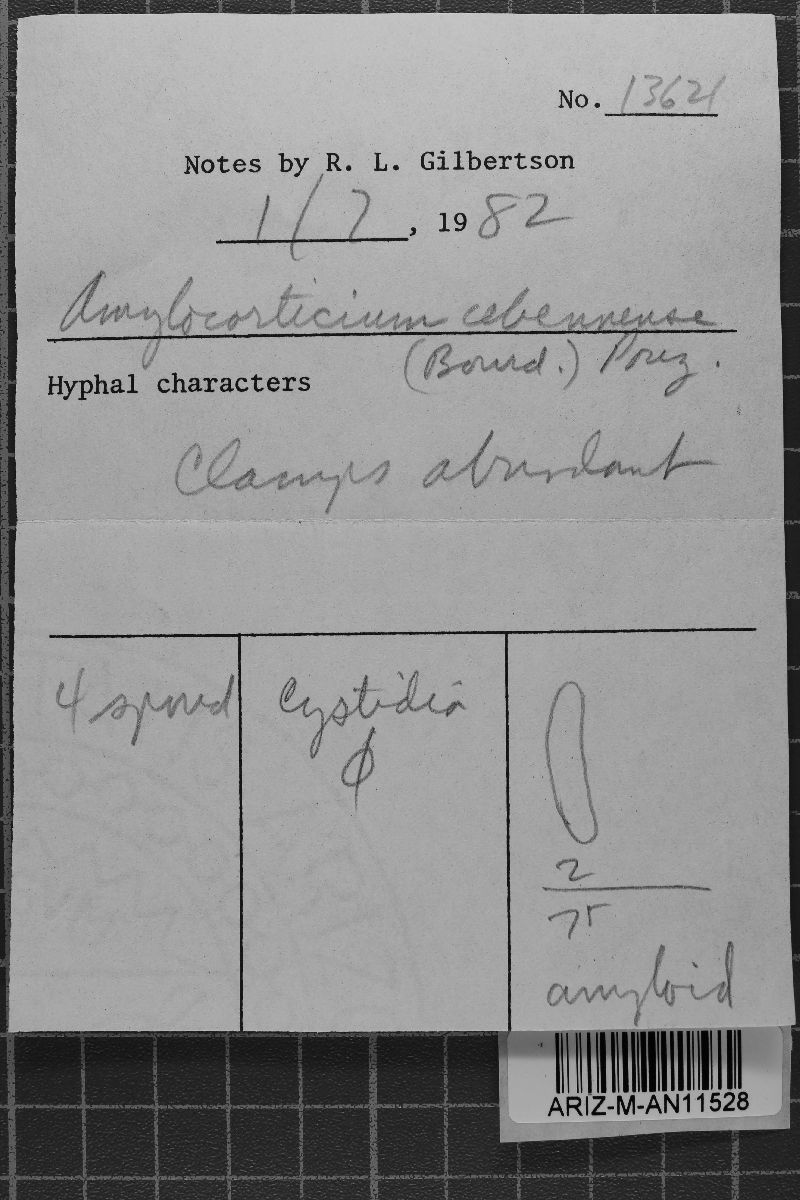 No. 13621
Notes by R. L. Gilbertson
1/7, 1982
Amylocorticium cebennense
(Bourd.) Pouz.
Hyphal characters
Clamps abundant
4 spored
Cystidia
φ
2
75
amyloid
ARIZ-M-AN11528